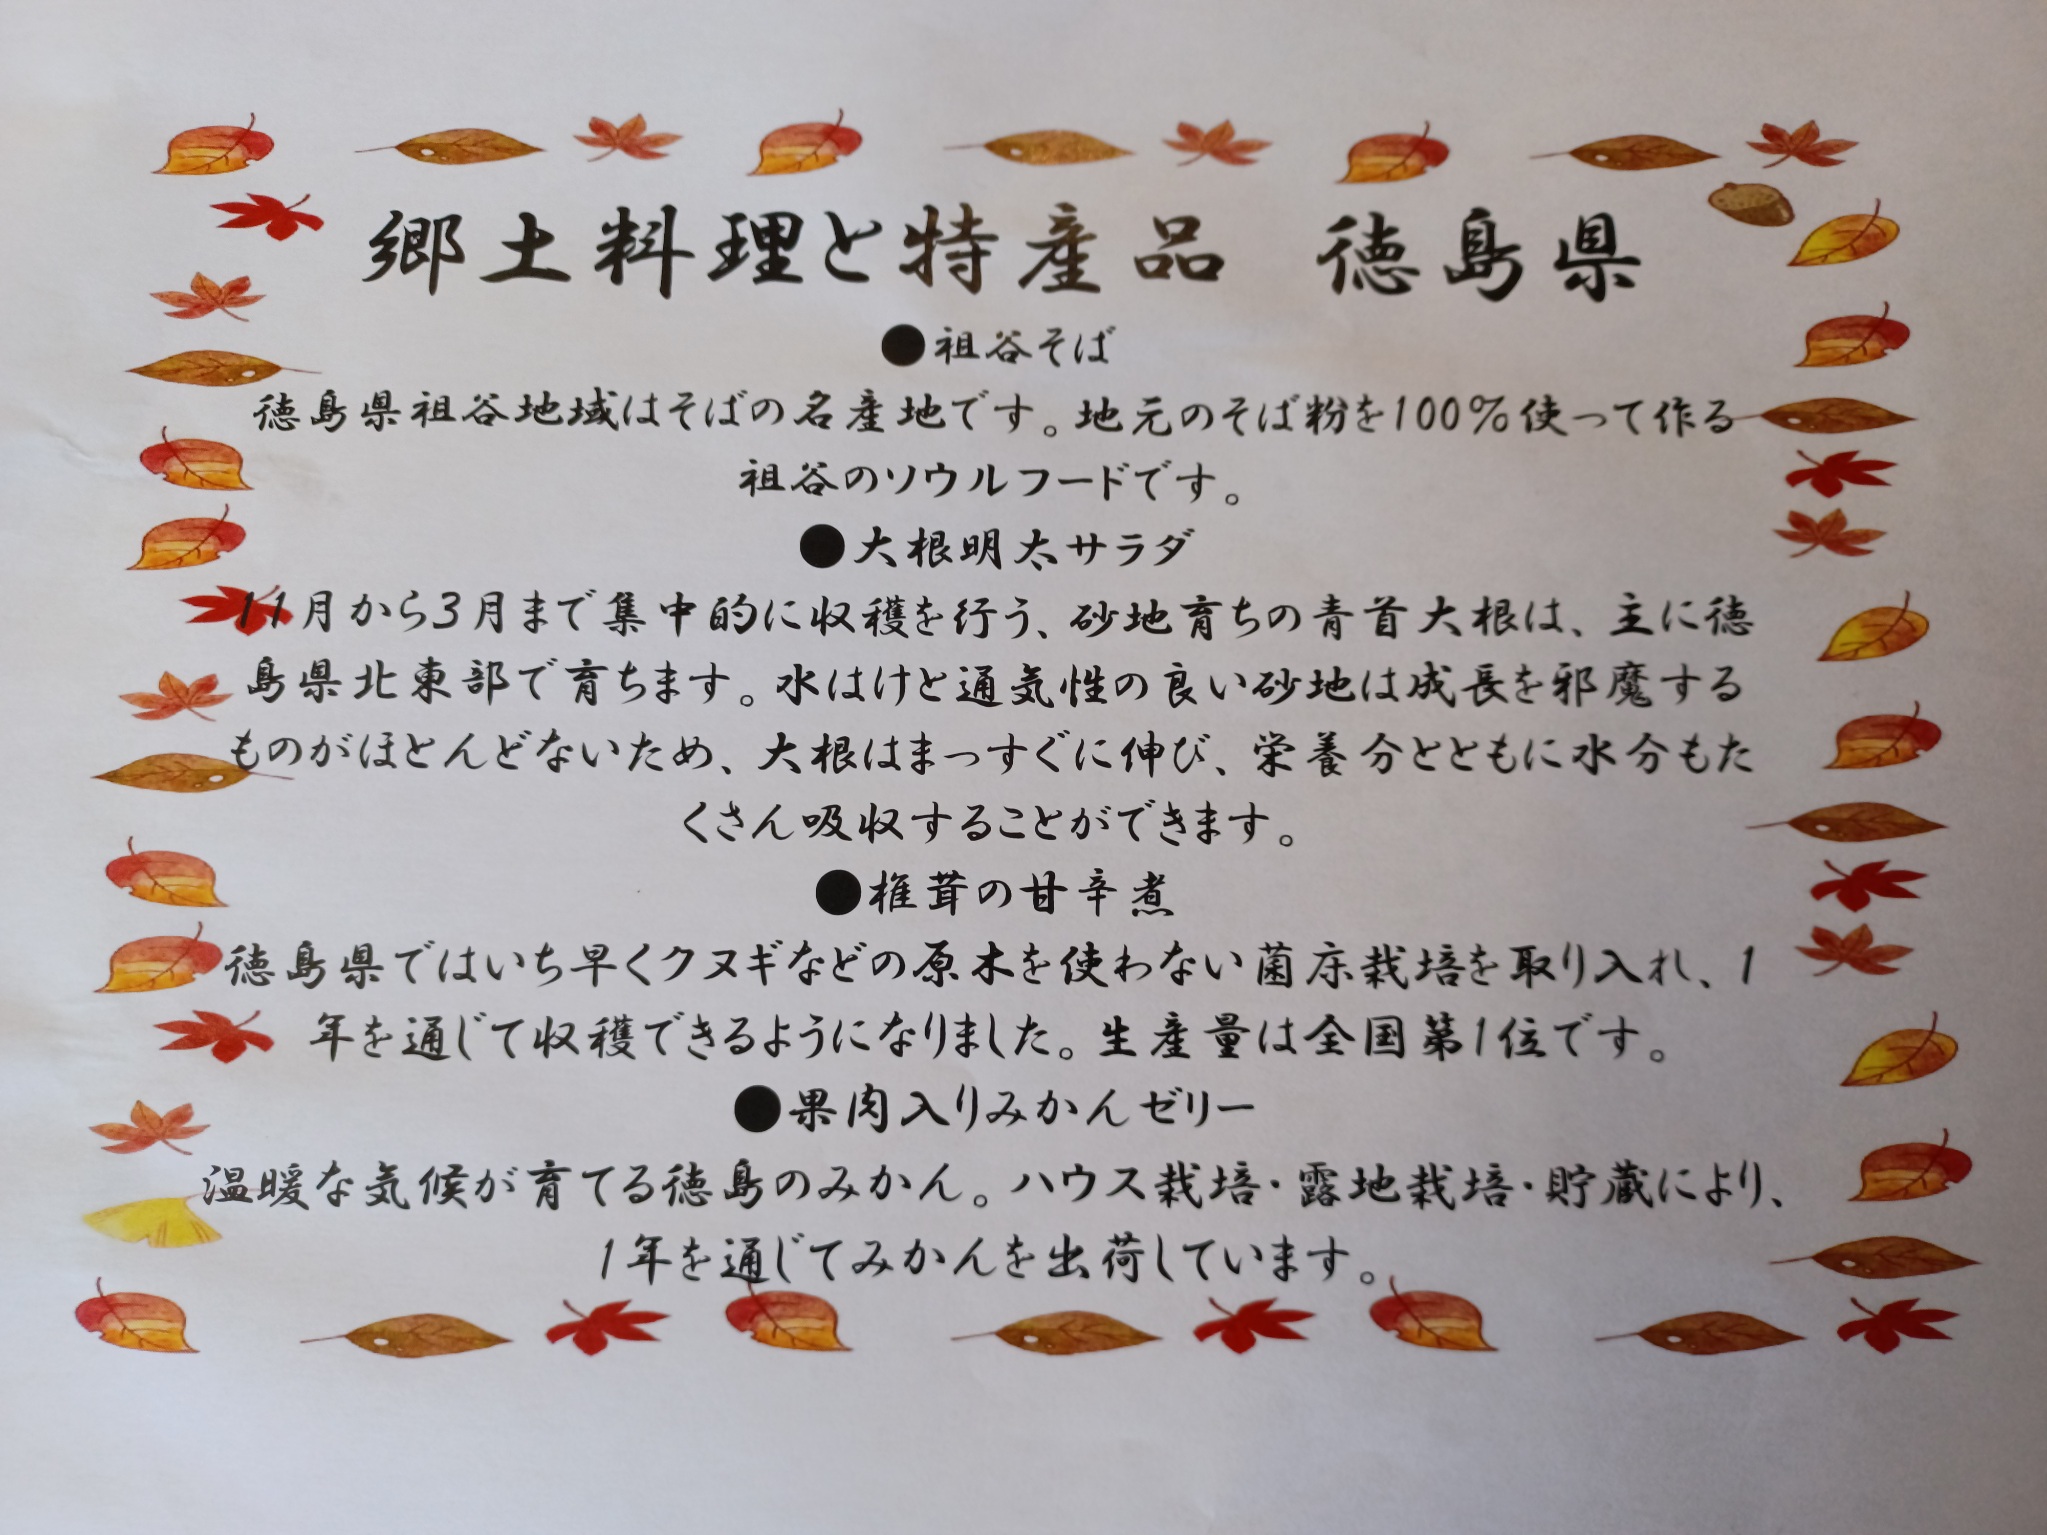 郷土料理と特産品　徳島県
●祖谷そば
徳島県祖谷地域はそばの名産地です。地元のそば粉を100％使って作る
祖谷のソウルフードです。
●大根明太サラダ
11月から3月まで集中的に収穫を行う、砂地育ちの青首大根は、主に徳
島県北東部で育ちます。水はけと通気性の良い砂地は成長を邪魔する
ものがほとんどないため、大根はまっすぐに伸び、栄養分とともに水分もた
くさん吸収することができます。
●椎茸の甘辛煮
徳島県ではいち早くクヌギなどの原木を使わない菌床栽培を取り入れ、1
年を通じて収穫できるようになりました。生産量は全国第1位です。
●果肉入りみかんゼリー
温暖な気候が育てる徳島のみかん。ハウス栽培・露地栽培・貯蔵により、
1年を通じてみかんを出荷しています。